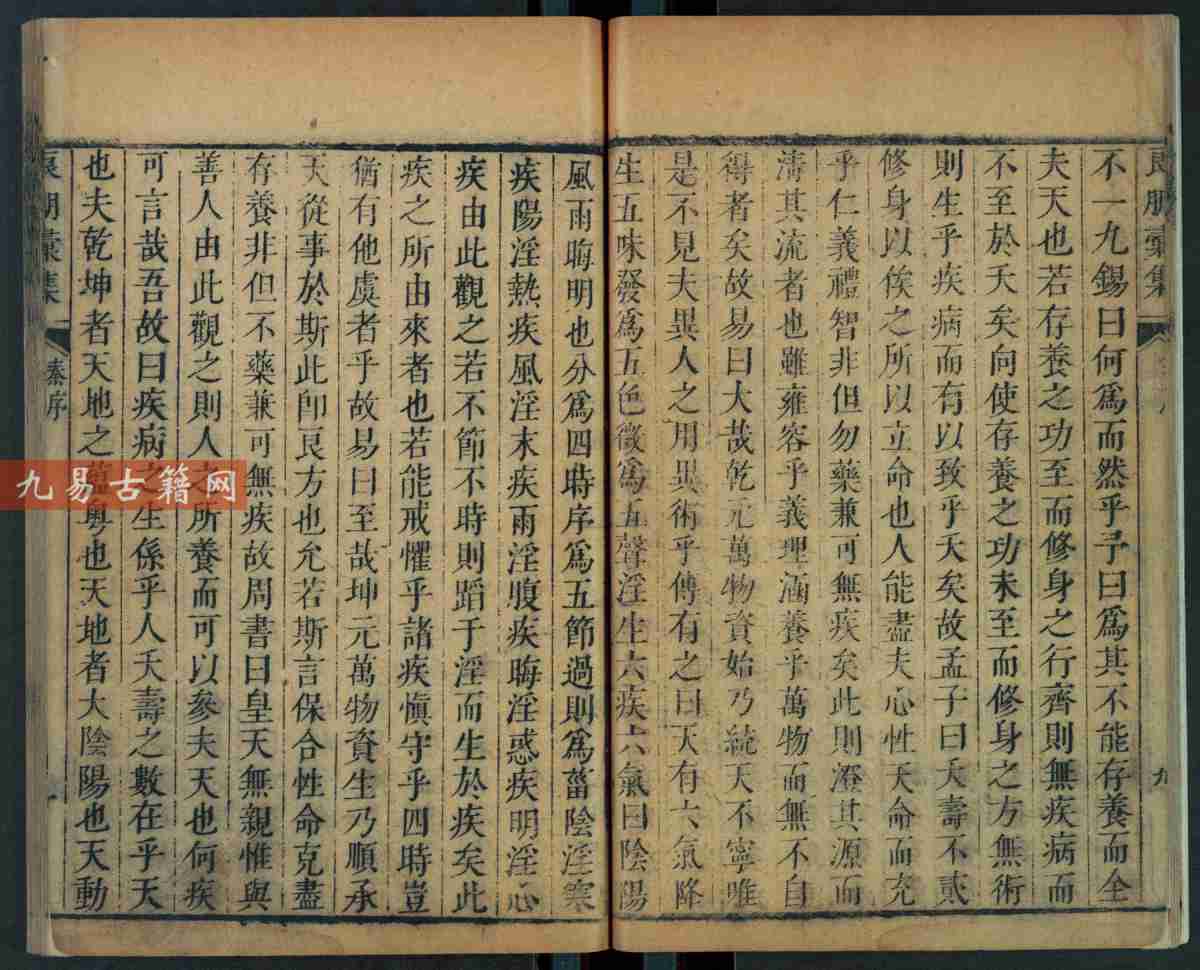 良朋彙集
九
不一九錫曰何爲而然乎予曰爲其不能存養而全
夫天也若存養之功至而修身之行齊則無疾病而
不至於夭矣向使存養之功未至而修身之方無術
則生乎疾病而有以致乎夭矣故孟子曰夭壽不貳
修身以俟之所以立命也人能盡夫心性天命而充
乎仁義禮智非但勿藥兼可無疾矣此則澄其源而
淸其流者也雖雍容乎義理涵養乎萬物而無不自
得者矣故易曰大哉乾元萬物資始乃統天不寧唯
是不見夫異人之用異術乎傳有之曰天有六氣降
生五味發爲五色徵爲五聲淫生六疾六氣曰陰陽
風雨晦明也分爲四時序爲五節過則爲菑陰淫寒
疾陽淫熱疾風淫末疾雨淫腹疾晦淫惑疾明淫心
疾由此觀之若不節不時則蹈于淫而生於疾矣此
疾之所由來者也若能戒懼乎諸疾愼守乎四時豈
猶有他虞者乎故易曰至哉坤元萬物資生乃順承
天從事於斯此卽良方也允若斯言保合性命克盡
存養非但不藥兼可無疾故周書曰皇天無親惟與
善人由此觀之則人之所養而可以參夫天也何疾
可言哉吾故曰疾病之生係乎人夭壽之數在乎天
也夫乾坤者天地之蘊奧也天地者大陰陽也天動
良朋彙集
秦序
九易古籍网